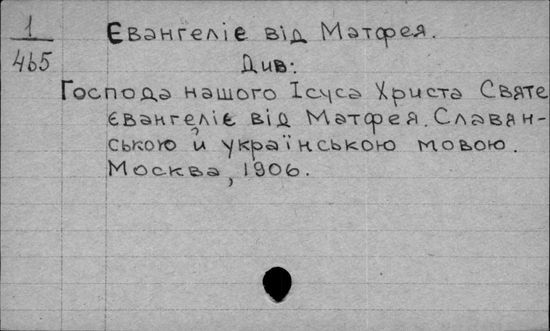 1
465
Євангеліє від Матфея.
Див:
Господа нашого Ісуса Христа Святе
євангеліє від Матфея. Славян-
ською й українською мовою.
Москва, 1906.